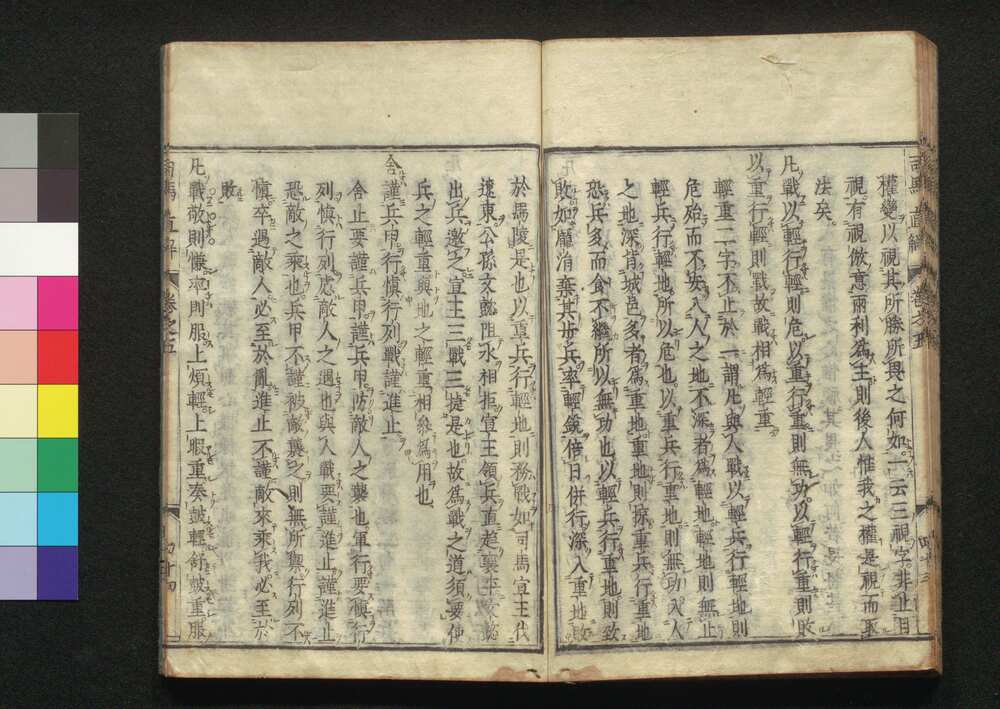 權變以視其所勝所畏之何如一云三視字非止目
視有視倣意兩利爲主則後人惟我之權是視而取
法矣
凡戰以輕行輕則危以重行重則無功以輕行重則敗
以重行輕則戰故戰相爲輕重
輕重二字不止於一謂凡與人戰以輕兵行輕地則
危殆而不安入人之地不深者爲輕地輕地則無止
輕兵行輕地所以危也以重兵行重地則無功入人
之地深背城邑多者爲重地重地則掠重兵行重地
恐兵多而食不繼所以無功也以輕兵行重地則致
敗如龐涓棄其步兵率輕銳倍日併行深入重地敗
於馬陵是也以重兵行輕地則務戰如司馬宣王伐
遼東公孫文懿阻水相拒宣王領兵直趨襄平文懿
出兵邀之宣王三戰三捷是也故爲戰之道須要使
兵之輕重與地之輕重相參爲用也
舍謹兵甲行愼行列戰謹進止
舍止要謹兵甲謹兵甲防敵人之襲也軍行要愼行
列愼行列慮敵人之遇也與人戰要謹進止謹進止
恐敵之乘也兵甲不謹被敵襲之則無所與行列不
愼卒遇敵人必至於亂進止不謹敵來乘我必至於
敗
凡戰敬則慊率則服上煩輕上暇重奏鼓輕舒鼓重服
司馬直解 卷之五